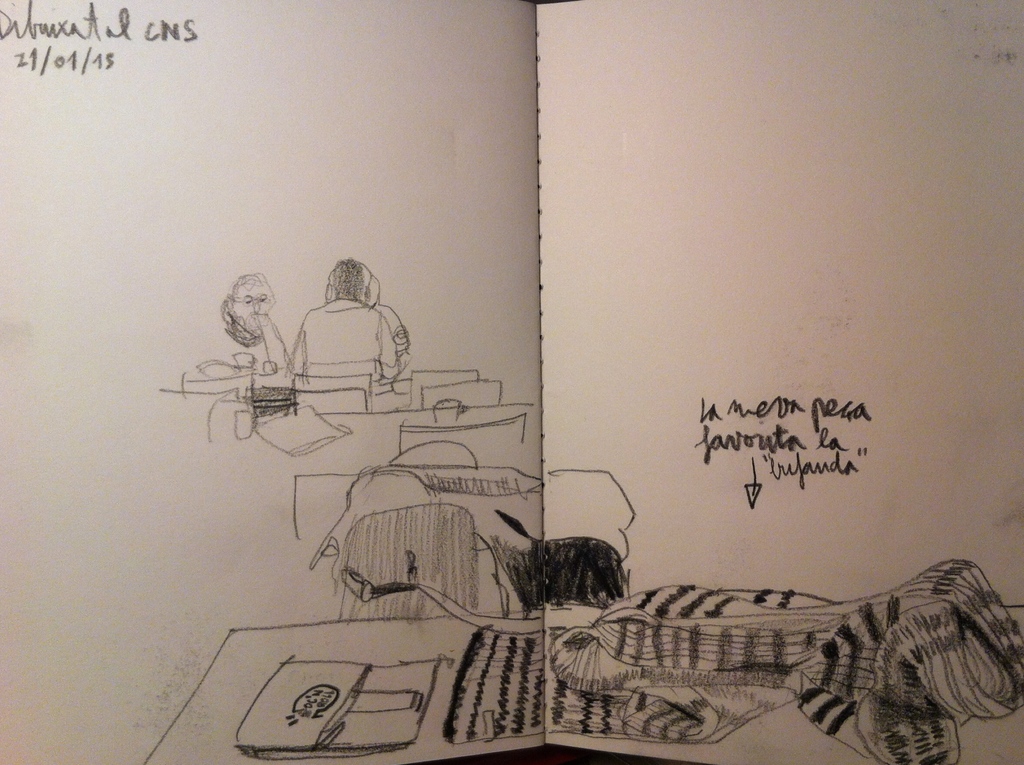 Dibuixat al CNS
21/01/15
La meva peça
favorita la
"bufanda"